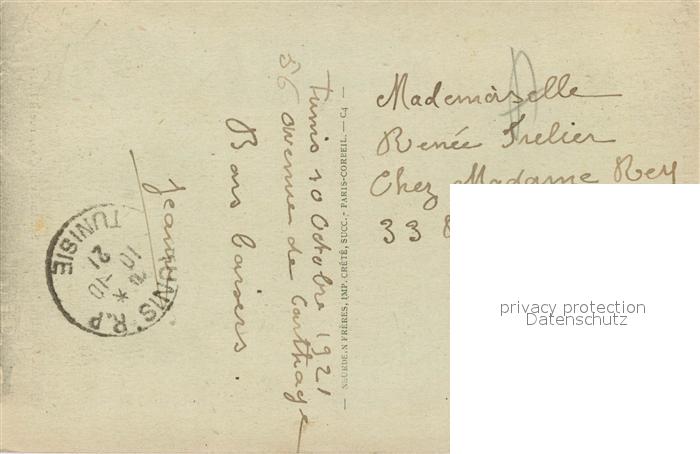 Tunis 10 Octobre 1921
56 avenue de Carthage
Bons baisers.
Jean
TUNIS R.P
TUNISIE
10
21 10
*
NEURDEIN FRÈRES, IMP. CRÉTÉ, SUCC.- PARIS-CORBEIL. — C4 —
Mademoiselle
Renée Trelier
Chez Madame Rey
33
privacy protection
Datenschutz